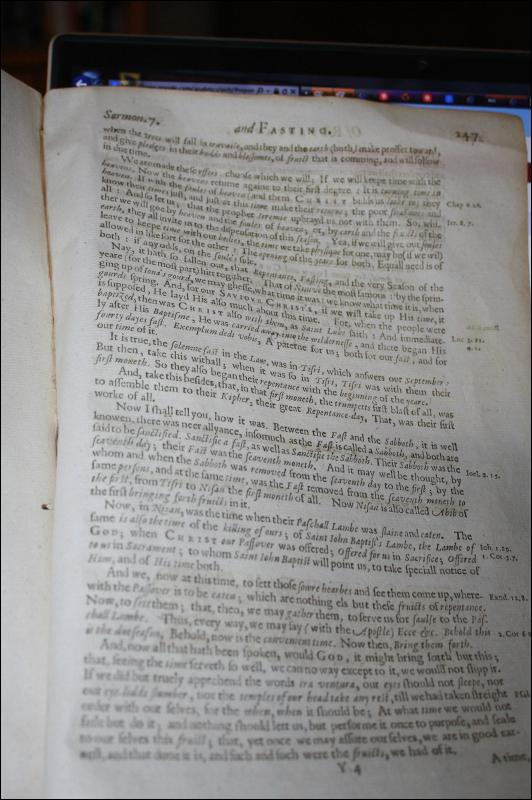 Sermon. 7.
and FASTING.
247.
when the trees will fall in travaile, and they and the earth (both) make proffer toward,
and give pledges in their budds and blossomes, of fruit that is comming, and will follow
in due time.
We are made these offers: chuse which we will; If we will keepe time with the
heavens. Now the heavens returne againe to their first degree: It is turning time in
heaven. If with the fowles of heaven (and them CHRIST bidds us looke to) they
know their times just, and just at this time make their returne; the poor
all: And so let us; that the prophet Jeremie upbrayd us not with them. So, whi-
ther we will goe by heaven and the fowles of heaven; or, by earth and the fruits of the
earth, they all invite us to the dispensation of this season. Yea, if we will give our
leave to keepe time with our bodies, the time we take physique for one, may be (if we will)
allowed in like sort for the other: The opening of the yeare for both. Equall need is of
both: if any odds, on the soule's side.
Nay, it hath so fallen out, that Repentance, Fasting, and the very Season of the
yeare (for the most part) hitt together. That of Ninive the most famous: by the spring-
ging up of Iona's gourd, we may ghesse, what time it was; we know what time it is, when
gourds spring. And, for our SAVIOUR CHRIST's, if we will take up His time, it
is supposed, He layd His also much about this time. For, when the people were
baptized, then was CHRIST also with them, as Saint Luke saith: And immediate-
ly after His Baptisme, He was carried away into the wildernesse, and there began His
fourty dayes fast. Exemplum dedi vobis, A patterne for us; both for our fast, and for
our time of it.
It is true, the solemne fast in the Law, was in Tisri, which answers our September:
But then, take this withall; when it was so in Tisri, Tisri was with them their
first moneth. So they also began their repentance with the beginning of the yeare.
And, take this besides, that, in that first moneth, the trumpets first blast of all, was
to assemble them to their Kipher, their great Repentance-day, That, was their first
worke of all.
Now I shall tell you, how it was. Between the Fast and the Sabboth, it is well
knowen, there was neer allyance, insomuch as the Fast is called a Sabboth, and both are
said to be sanctified. Sanctifie a fast, as well as Sanctifie the Sabboth. Their Sabboth was the
seaventh day; their Fast was the seaventh moneth. And it may well be thought, by
whom and when the Sabboth was removed from the seaventh day to the first; by the
same persons, and at the same time, was the Fast removed from the seaventh moneth to
the first, from Tisri to Nisan the first moneth of all. Now Nisan is also called Abib of
the first bringing forth fruits in it.
Now, in Nisan, was the time when their Paschall Lambe was slaine and eaten. The
same is also the time of the killing of ours; of Saint John Baptist's Lambe, the Lambe of
GOD; when CHRIST our Passover was offered; Offered for us in Sacrifice; Offered
to us in Sacrament; to whom Saint John Baptist will point us, to take speciall notice of
Him, and of His time both.
And we, now at this time, to sett those sowre hearbes and see them come up, where-
with the Passover is to be eaten; which are nothing els but these fruicts of repentance.
Now, to sett them; that, then, we may gather them, to serve us for saulse to the Pas-
chall Lambe. Thus, every way, we may say (with the Apostle) Ecce &c. Behold this
is the due season, Behold, now is the convenient time. Now then, Bring them forth.
And, now all that hath been spoken, would GOD, it might bring forth but this;
that, seeing the time serveth so well, we can no way except to it, we would not slipp it.
If we did but truely apprehend the words ira ventura, our eyes should not sleepe, nor
our eye-lidds slumber, nor the temples of our head take any rest, till we had taken streight
order with our selves, for the when, when it should be; At what time we would not
faile but do it; and nothing should lett us, but performe it once to purpose, and seale
to our selves this fruict; that, yet once we may assure our selves, we are in good ear-
nest, and that done it is, and such and such were the fruicts, we had of it.
Y 4
A time,
Chap 6.26.
Ier. 8.7.
Luc 3.21.
4.1.
Ioel. 2.15.
Ioh. 1.29.
1. Cor 5.7.
Exod. 12.8.
2. Cor 6.2